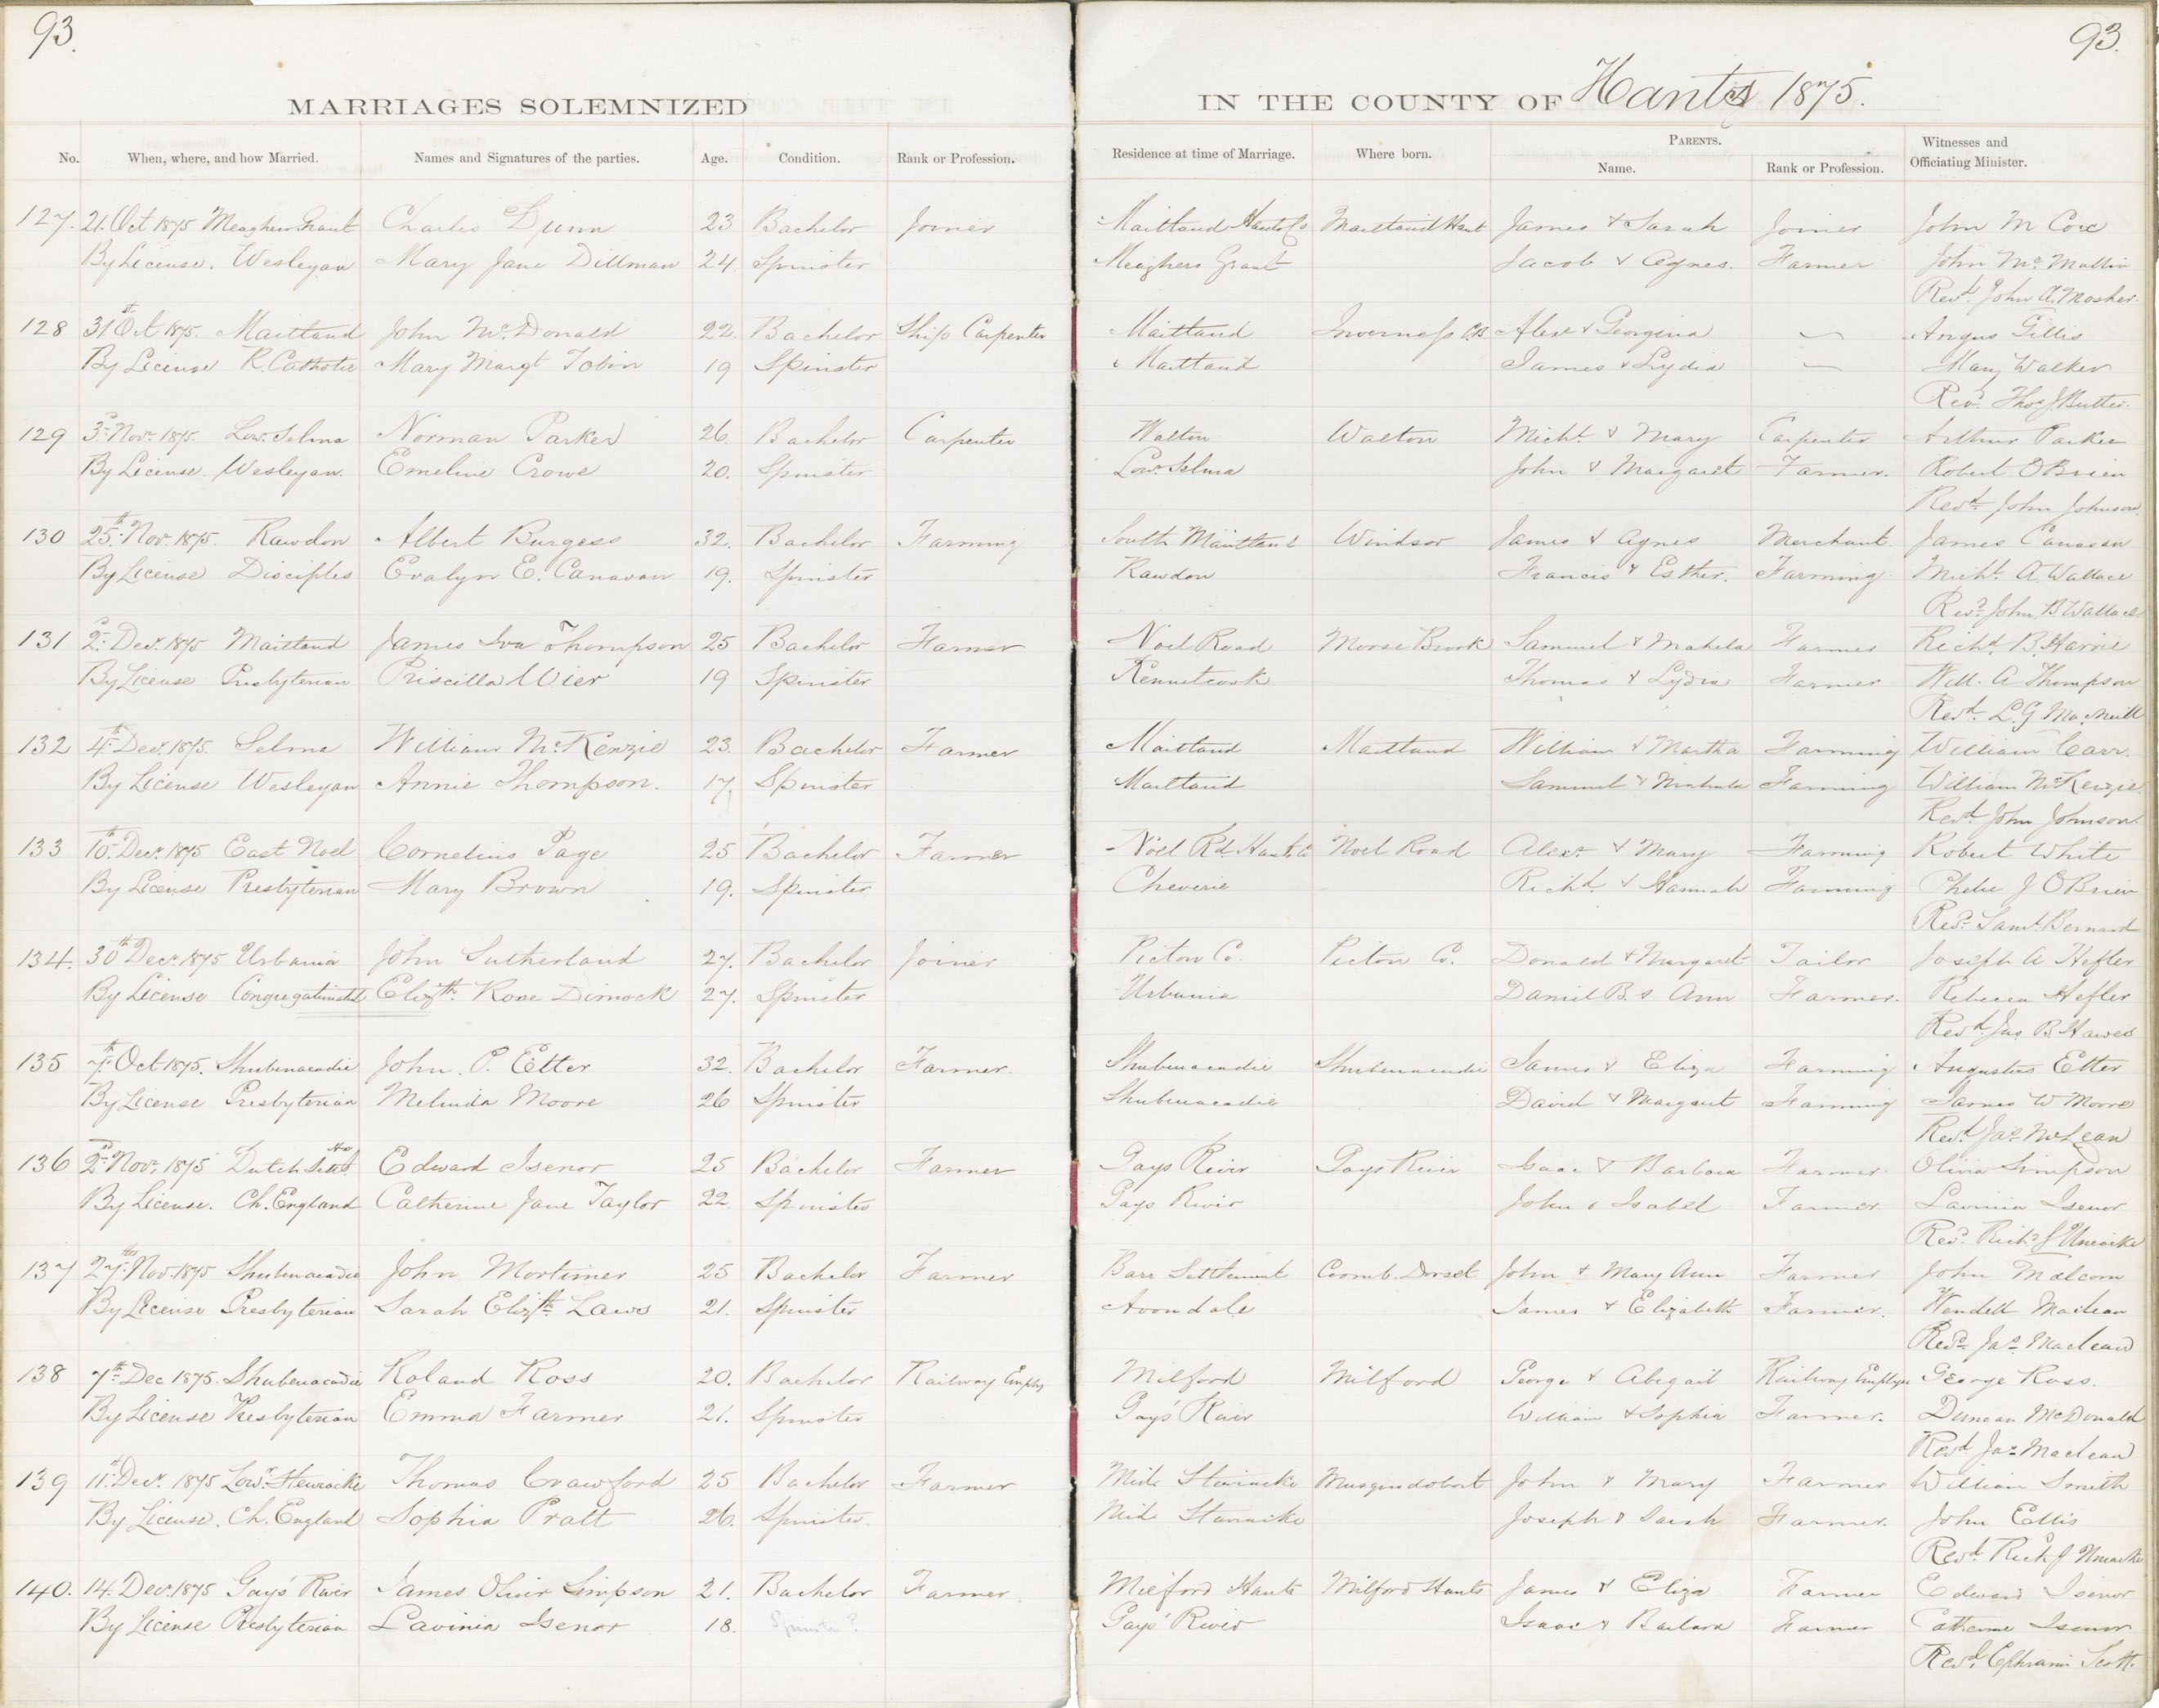 93.
93.
MARRIAGES SOLEMNIZED
IN THE COUNTY OF Hants 1875.
No. When, where, and how Married. Names and Signatures of the parties. Age. Condition. Rank or Profession. Residence at time of Marriage. Where born. PARENTS. Name. Rank or Profession. Witnesses and Officiating Minister.
127. 21. Oct 1875 Meaghers Grant Charles Dunn 23 Bachelor Joiner Maitland Hants Co Maitland Hant James & Sarah Joiner John M Cox
By License. Wesleyan Mary Jane Dillman 24 Spinster Meaghers Grant Jacob & Agnes. Farmer John Mc Mullin
Revd. John A. Mosher.
128 31st Oct 1875. Maitland John McDonald 22. Bachelor Ship Carpenter Maitland Inverness C.B. Alex & Georgina Angus Gillis
By License R. Catholic Mary Margt Tobin 19 Spinster Maitland James & Lydia Mary Walker
Revd. Thos J Butler.
129 3d Nov. 1875. Lowr Selma Norman Parker 26. Bachelor Carpenter Walton Walton Michl. & Mary Carpenter Arthur Parker
By License. Wesleyan. Emeline Crowe 20. Spinster Lowr Selma John & Margaret Farmer. Robert OBrien
Revd. John Johnson.
130 25th Nov. 1875. Rawdon Albert Burgess 32. Bachelor Farming South Maitland Windsor James & Agnes Merchant. James Canavan
By License Disciples Evalyn E. Canavan 19. Spinster Rawdon Francis & Esther. Farming Michl. A. Wallace
Revd. John B Wallace
131 2d Decr. 1875 Maitland James Iva Thompson 25 Bachelor Farmer Noel Road Moose Brook Samuel & Mahela Farmer Richd. B. Harvie
By License Presbyterian Priscilla Wier 19 Spinster Kennetcook Thomas & Lydia Farmer Will. A Thompson
Revd. L. G MacNeill
132 4th Decr. 1875. Selma William McKenzie 23. Bachelor Farmer Maitland Maitland William & Martha Farming William Carr.
By License Wesleyan Annie Thompson. 17. Spinster Maitland Samuel & Mahala Farming William McKenzie.
Revd. John Johnson.
133 10th Decr. 1875 East Noel Cornelius Page 25 Bachelor Farmer Noel Rd. Hants Co Noel Road Alexr. & Mary Farming Robert White
By License Presbyterian Mary Brown 19. Spinster. Cheverie Richd. & Hannah Farming Phebe J OBrien
Revd. Saml. Bernard
134. 30th Decr. 1875 Urbania John Sutherland 27. Bachelor Joiner Pictou Co. Pictou Co. Donald & Margaret Tailor Joseph A Hefler
By License Congregationalist Elizth. Rose Dimock 27. Spinster Urbania Daniel B. & Ann Farmer. Rebecca Hefler
Revd. Jas B Hawes
135 7th Oct 1875. Shubenacadie John. P. Etter 32. Bachelor Farmer. Shubenacadie Shubenacadie James & Eliza Farming Augustus Etter
By License Presbyterian Melinda Moore 26 Spinster Shubenacadie David & Margaret Farming James W Moore
Revd Jas McLean
136 2d Nov. 1875 Dutch Settt Hx Edward Isenor 25 Bachelor Farmer Gays River Gays River Isaac & Barbara Farmer. Olivia Simpson
By License. Ch. England Catherine Jane Taylor 22 Spinster Gays River John & Isabel Farmer Lavinia Isenor
Revd. Richd J Uniacke
137 27th Nov. 1875 Shubenacadie John Mortimer 25 Bachelor Farmer Barr Settlement Coomb. Dorset John & Mary Ann Farmer John Malcom
By License Presbyterian Sarah Elizth. Laws 21. Spinster Avondale James & Elizabeth Farmer. Wendell Maclean
Revd. Jas. Maclean
138 7th Dec 1875. Shubenacadie Roland Ross 20. Bachelor Railway Employ Milford Milford George & Abigail Railway Employe George Ross.
By License Presbyterian Emma Farmer 21. Spinster Gays' River William & Sophia Farmer. Duncan McDonald
Revd Jas. Maclean
139 11th Decr. 1875 Lowr. Stewiacke Thomas Crawford 25 Bachelor Farmer Mid. Stewiacke Musquodoboit John & Mary Farmer William Smith
By License. Ch. England Sophia Pratt 26. Spinster. Mid. Stewiacke Joseph & Sarah Farmer. John Ellis
Revd. Richd J Uniacke
140. 14. Decr. 1875 Gays' River James Oliver Simpson 21. Bachelor Farmer. Milford Hants Milford Hants James & Eliza Farmer Edward Isenor
By License Presbyterian Lavinia Isenor 18. Spinster? Gays' River Isaac & Barbara Farmer Catherine Isenor
Revd. Ephraim Scott.